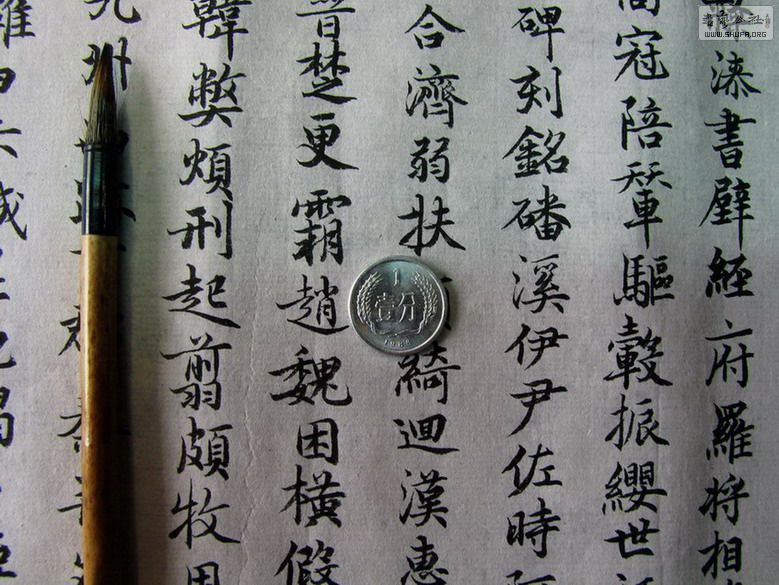 書藝公社
WWW.SHUFA.ORG
漆書壁經府羅將相
高冠陪輦驅轂振纓世
碑刻銘磻溪伊尹佐時阿
合濟弱扶綺迴漢惠
晉楚更霸趙魏困橫假
韓弊煩刑起翦頗牧用
九州
田城碣
1
壹分